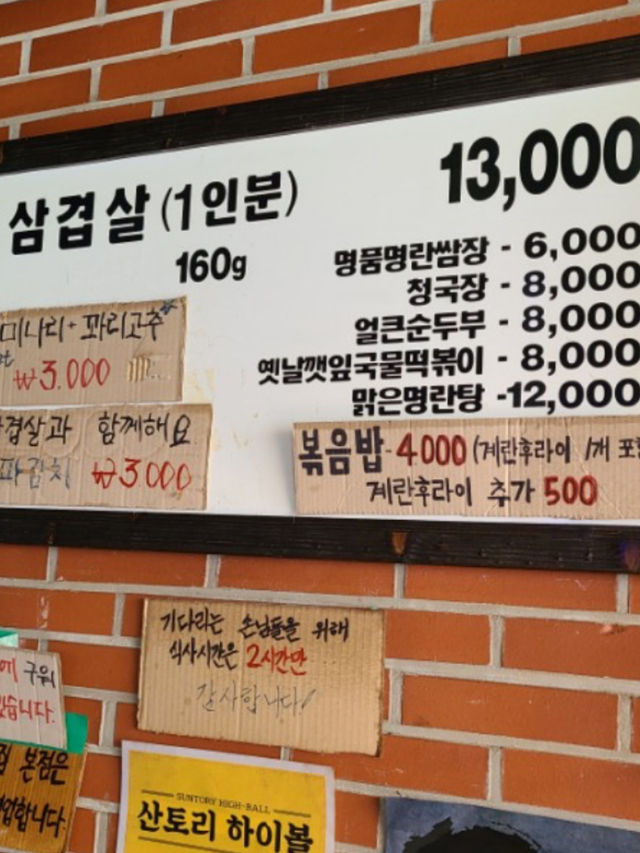 삼겹살 (1인분) 13,000
160g
명품명란쌈장 - 6,000
청국장 - 8,000
얼큰순두부 - 8,000
옛날깻잎국물떡볶이 - 8,000
맑은명란탕 -12,000
미나리+ 꽈리고추
₩3.000
겹살과 함께해요
파김치 ₩3000
볶음밥- 4000 (계란후라이 1개 포
계란후라이 추가 500
기다리는 손님들을 위해
식사시간은 2시간만
감사합니다!
에 구워
있습니다.
본점은
업합니다.
SUNTORY HIGH-BALL
산토리 하이볼